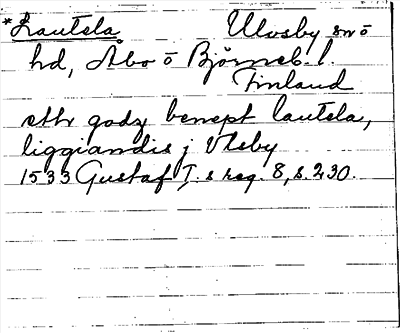 *Lautela Ulvsby sn o
hd, Åbo o Björneb. l.
Finland
ette godz benept lautela,
liggiandis j Vlsby
1533 Gustaf I. s reg. 8, s. 230.